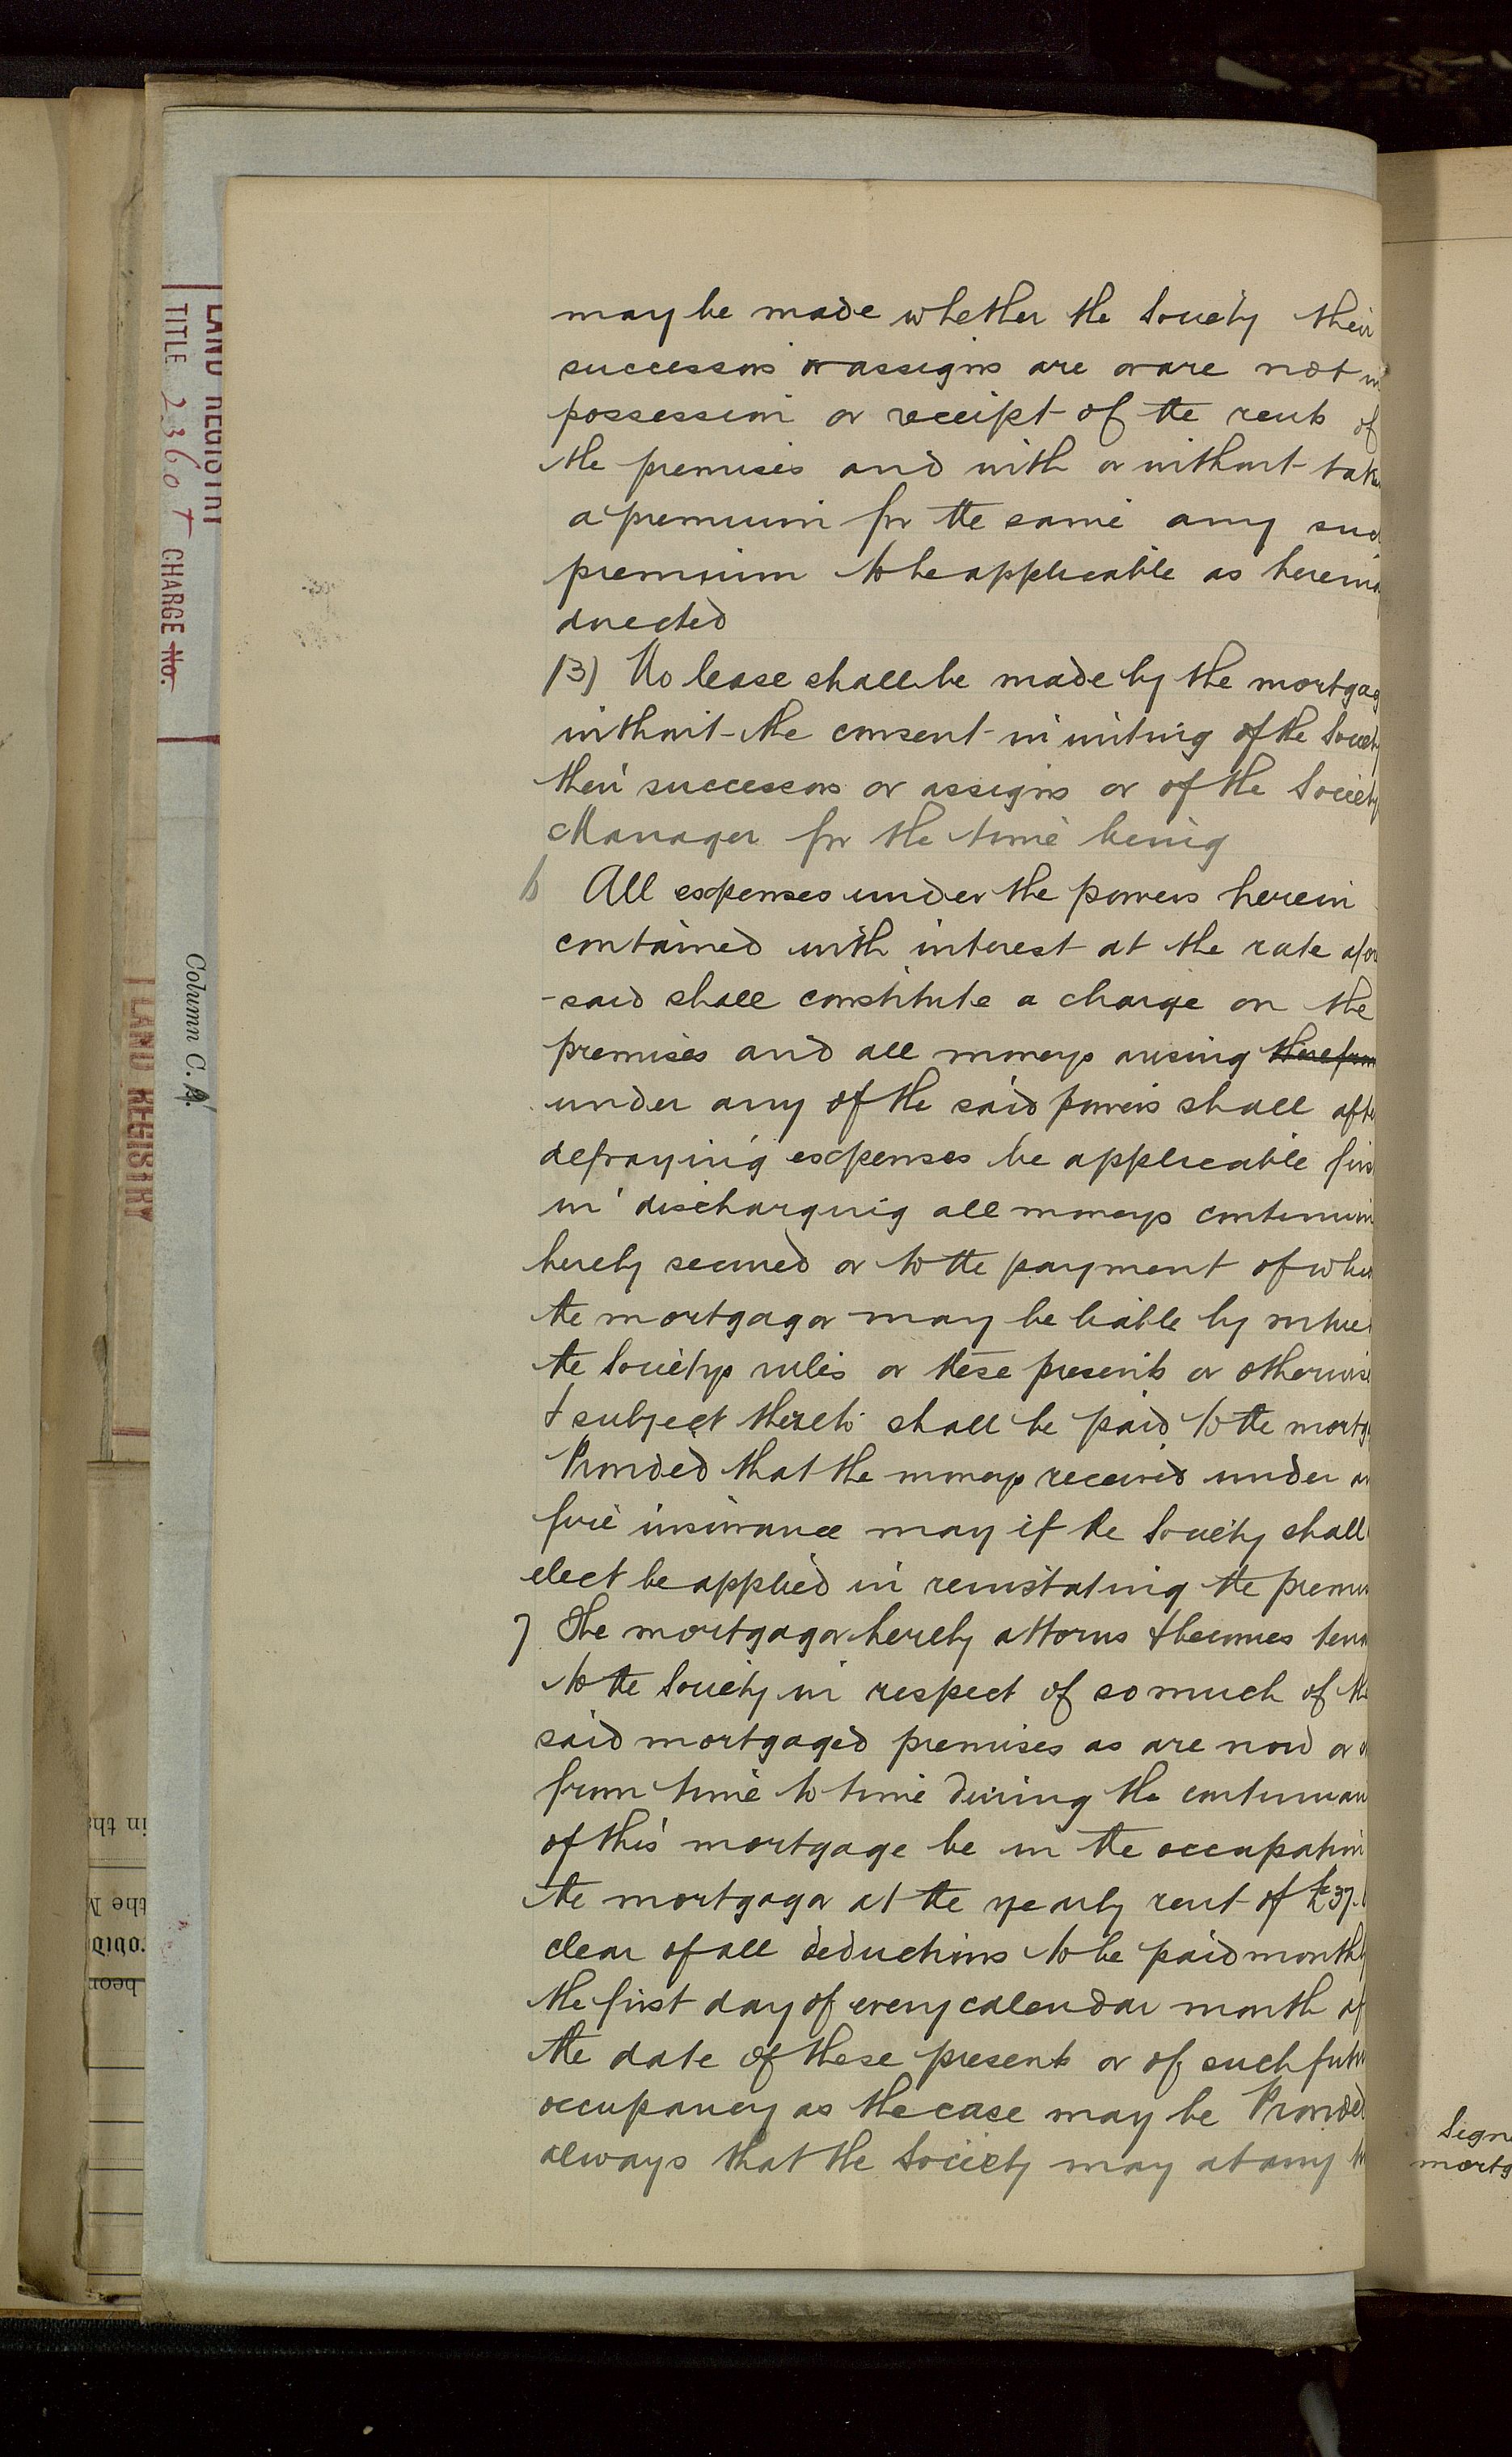 may be made whether the Society their
successors or assigns are or are not in
possession or receipt of the rents of
the premises and with or without tak
a premium for the same any suc
premium to be applicable as hereina
directed
(3) No lease shall be made by the mortgag
without the consent in writing of the Society
their successors or assigns or of the Society
Manager for the time being
6 All expenses under the powers herein
contained with interest at the rate afor
-said shall constitute a charge on the
premises and all moneys arising therefrom
under any of the said powers shall afte
defraying expenses be applicable firs
in discharging all moneys continuin
hereby secured or to the payment of whic
the mortgagor may be liable by virtue
the Societys rules or these presents or otherwise
& subject thereto shall be paid to the mortg
Provided that the moneys received under an
fire insurance may if the Society shall
elect be applied in reinstating the premis
7 The mortgagor hereby attorns & becomes tena
to the Society in respect of so much of the
said mortgaged premises as are now or
from time to time during the continuan
of this mortgage be in the occupation
the mortgagor at the yearly rent of £37.
clear of all deductions to be paid monthly
the first day of every calendar month af
the date of these presents or of such futur
occupancy as the case may be Provided
always that the Society may at any
LAND REGISTRY
TITLE 23607 CHARGE No.
Column C.
LAND REGISTRY
in the
the M
heor
Signe
mortg